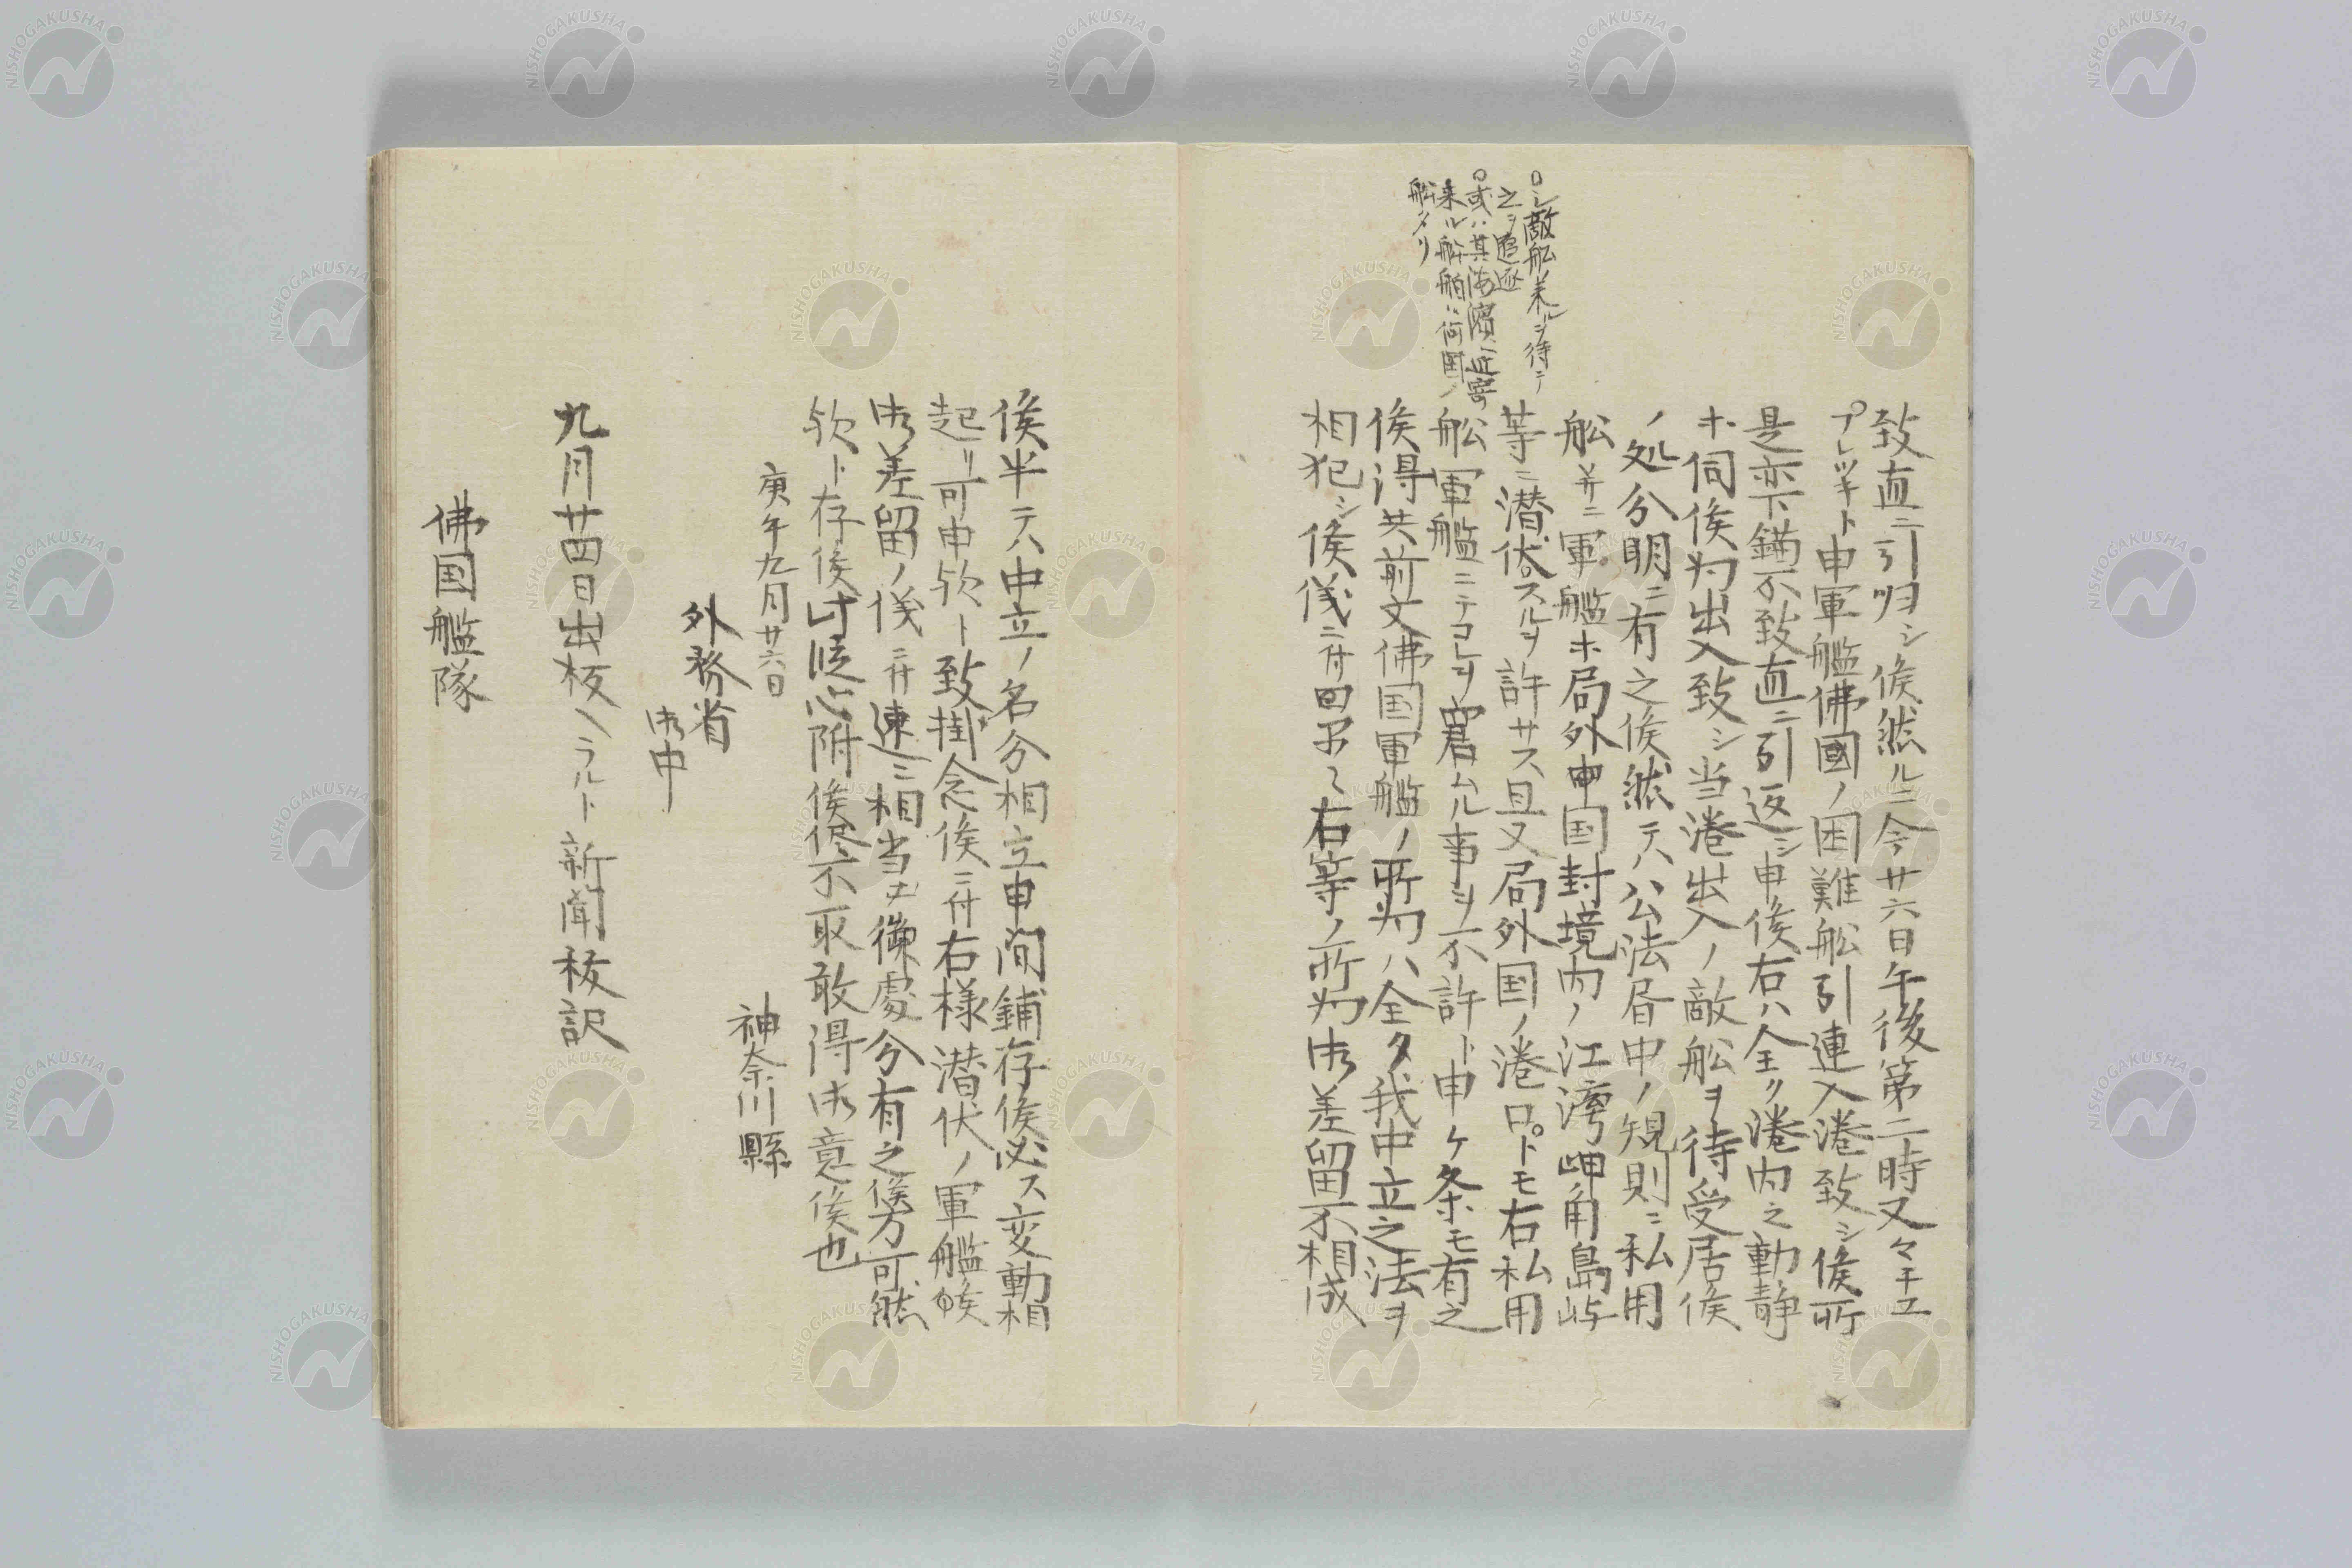 致直ニ引归シ候然ルニ今廿六日午後第二時又々チユ
プレッキト申軍艦佛國ノ困難舩引連入港致シ候所
是亦下錨不致直ニ引返シ申候右ハ全ク港内之動静
ホ伺候为出入致シ当港出入ノ敵舩ヲ待受居候
ノ処分明ニ有之候然テハ公法居中ノ規則ニ私用
舩并ニ軍艦ホ局外中国封境内ノ江湾岬角島屿
等ニ潜伏スルヲ許サス且又局外国ノ港口トモ右私用
舩軍艦ニテコレヲ窘ムル事ヲ不許ト申ケ条モ有之
候得共前文佛国軍艦ノ所为ハ全タ我中立之法ヲ
相犯シ候儀ニ付右等ノ所为御差留不相成
○シ敵舩来ルヲ待テ
之ヲ追逐
○或ハ其海濱ニ近寄
来ル舩舶ハ何国ノ
舩タリ
候半テハ中立ノ名分相立申間鋪存候必ス変動相
起リ可申欤ト致掛念候ニ付右様潜伏ノ軍艦候
御差留ノ儀ニ付速ニ相当ナ御處分有之候方可然
欤ト存候付心附候侭不取敢得御意候也
庚午九月廿六日
神奈川縣
外務省
御中
九月廿四日出板ヘラルト新聞秡訳
佛国艦隊